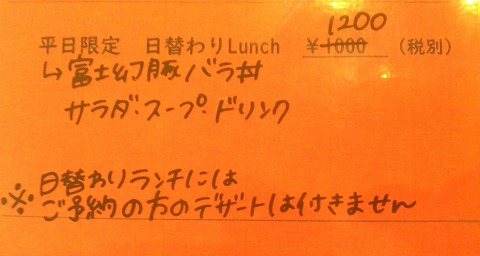 1200
平日限定 日替わりLunch ¥1000 (税別)
↳富士幻豚バラ丼
サラダ・スープ・ドリンク
日替わりランチには
※ご予約の方のデザートは付きません